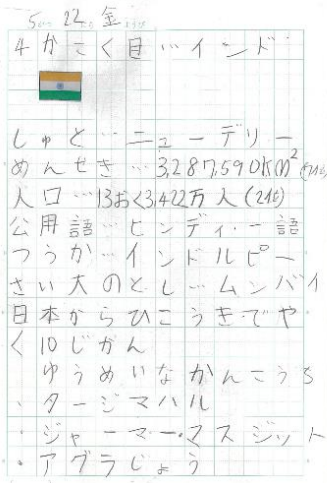 5 22 金
4かこく目…インド
しゅと…ニューデリー
めんせき…3,287,590km²(7位)
人口…13おく3,422万人(2位)
公用語…ヒンディー語
つうか…インドルピー
さい大のとし…ムンバイ
日本からひこうきでや
く10じかん
ゆうめいなかんこうち
・タージマハル
・ジャーマー・マスジット
・アグラじょう